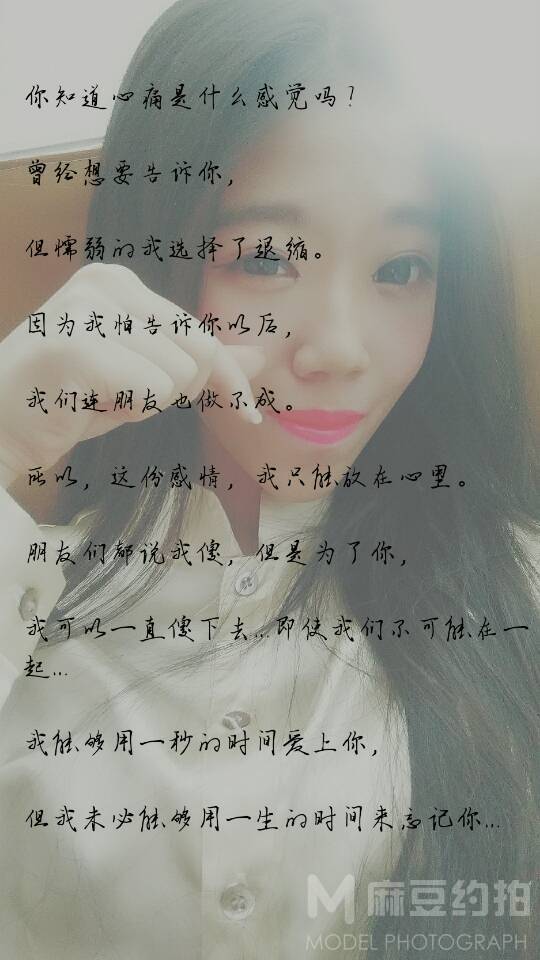 你知道心痛是什么感觉吗?
曾经想要告诉你,
但懦弱的我选择了退缩。
因为我怕告诉你以后,
我们连朋友也做不成。
所以,这份感情,我只能放在心里。
朋友们都说我傻,但是为了你,
我可以一直傻下去...即使我们不可能在一
起...
我能够用一秒的时间爱上你,
但我未必能够用一生的时间来忘记你...
M 麻豆约拍
MODEL PHOTOGRAPH